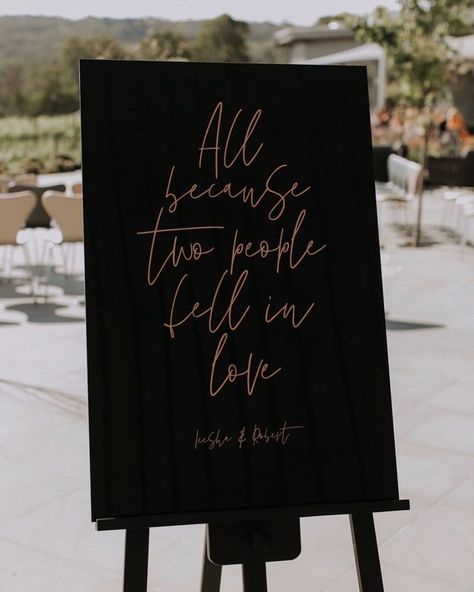 All
because
two people
fell in
love
Leesha & Robert